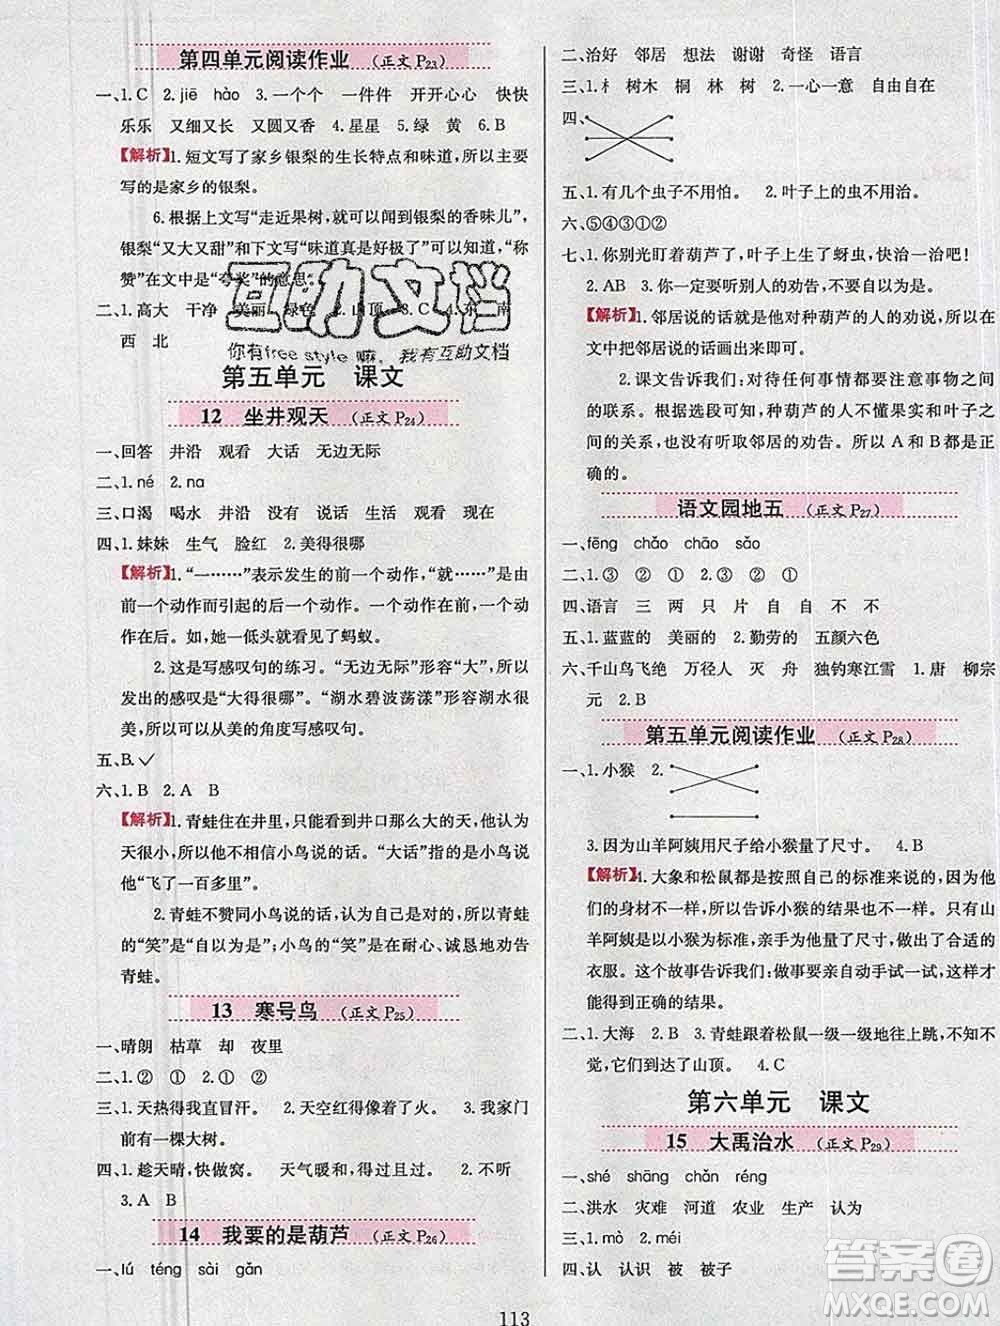 第四单元阅读作业 (正文 P23)
一、1. C 2. jiē hào 3. 一个个 一件件 开开心心 快快
乐乐 又细又长 又圆又大 4. 星星 5. 绿 黄 6. B
【解析】1. 短文写了家乡银梨的生长特点和味道，所以主要
写的是家乡的银梨。
6. 根据上文写“走近果树，就可以闻到银梨的香味儿”，
银梨“又大又甜”和下文写“味道真是好极了”可以知道，“称
赞”在文中是“夸奖”的意思。
二、1. 高大 干净 美丽 绿色 2. 山顶 3. C 4. 东 南
西 北
互助文档
你有free style嘛，我有互助文档
第五单元 课文
12 坐井观天 (正文 P24)
一、回答 井沿 观看 大话 无边无际
二、1. né 2. na
三、口渴 喝水 井沿 没有 说话 生活 观看 现在
四、1. 妹妹 生气 脸红 2. 美得很哪
【解析】1. “一……”表示发生的前一个动作，“就……”是由
前一个动作而引起的后一个动作，所以后一个动作要跟
前一个动作对应。如，她一低头就看见了蚂蚁。
2. 这是写感叹句的练习。“无边无际”形容“大”，所以
发出的感叹是“大得很哪”。“湖水碧波荡漾”形容湖水很
美，所以可以从美的角度写感叹句。
五、B ✓
六、1. B 2. A B
【解析】1. 青蛙住在井里，只能看到井口那么大的天，觉得
天很小，所以不相信小鸟说的话。“大话”指的是小鸟说
他“飞了一百多里”。
2. 青蛙不赞同小鸟说的话，认为自己是对的，所以青蛙
的“笑”是“自以为是”；小鸟的“笑”是在耐心、诚恳地劝告
青蛙。
13 寒号鸟 (正文 P25)
一、晴朗 枯草 却 夜里
二、1. ② ① 2. ① ②
三、1. 天热得我直冒汗。 2. 天空红得像着了火。 3. 我家门
前有一棵大树。
四、1. 趁天晴，快做窝。 天气暖和，得过且过。 2. 不听
3. A B
14 我要的是葫芦 (正文 P26)
一、lú téng sài gǎn
二、治好 邻居 想法 谢谢 奇怪 语言
三、1. 木 树木 桐 林 树 2. 一心一意 自由自在
四、
五、1. 有几个虫子不用怕。 2. 叶子上的虫不用治。
六、⑤④③①②
七、1. 你别光盯着葫芦了，叶子上生了蚜虫，快治一治吧！
2. AB 3. 你一定要听别人的劝告，不要自以为是。
【解析】1. 邻居说的话就是他对种葫芦的人的劝说，所以在
文中把邻居说的话画出来即可。
2. 课文告诉我们：对待任何事情都要注意事物之间
的联系。根据选段可知，种葫芦的人不懂果实和叶子之
间的关系，也没有听取邻居的劝告。所以 A 和 B 都是正
确的。
语文园地五 (正文 P27)
一、fēng chǎo chāo sǎo
二、1. ③ ② ① 2. ③ ② ①
四、语言 三 两 只 片 自 自 不 不
五、1. 蓝蓝的 美丽的 2. 勤劳的 五颜六色
六、千山鸟飞绝 万径人 灭 舟 独钓寒江雪 1. 唐 柳宗
元 2. B
第五单元阅读作业 (正文 P28)
一、1. 小猴 2.
3. 因为山羊阿姨用尺子给小猴量了尺寸。 4. B
【解析】4. 大象和松鼠都是按照自己的标准来说的，因为他
们的身材不一样，所以告诉小猴的结果也不一样。只有山
羊阿姨以小猴为标准，亲手为他量尺寸，做出了合适的
衣服。这个故事告诉我们：做事要亲自动手试一试，这样
才能得到正确的结果。
二、1. 大海 2. B 3. 青蛙跟着松鼠一级一级地往上跳，不知不
觉，它们到了山顶。 4. C
第六单元 课文
15 大禹治水 (正文 P29)
一、shé shāng chǎn réng
二、洪水 灾难 河道 农业 生产 认为
三、1. mò 2. méi
四、认 认识 被 被子
113
答案圈
MXQE.COM